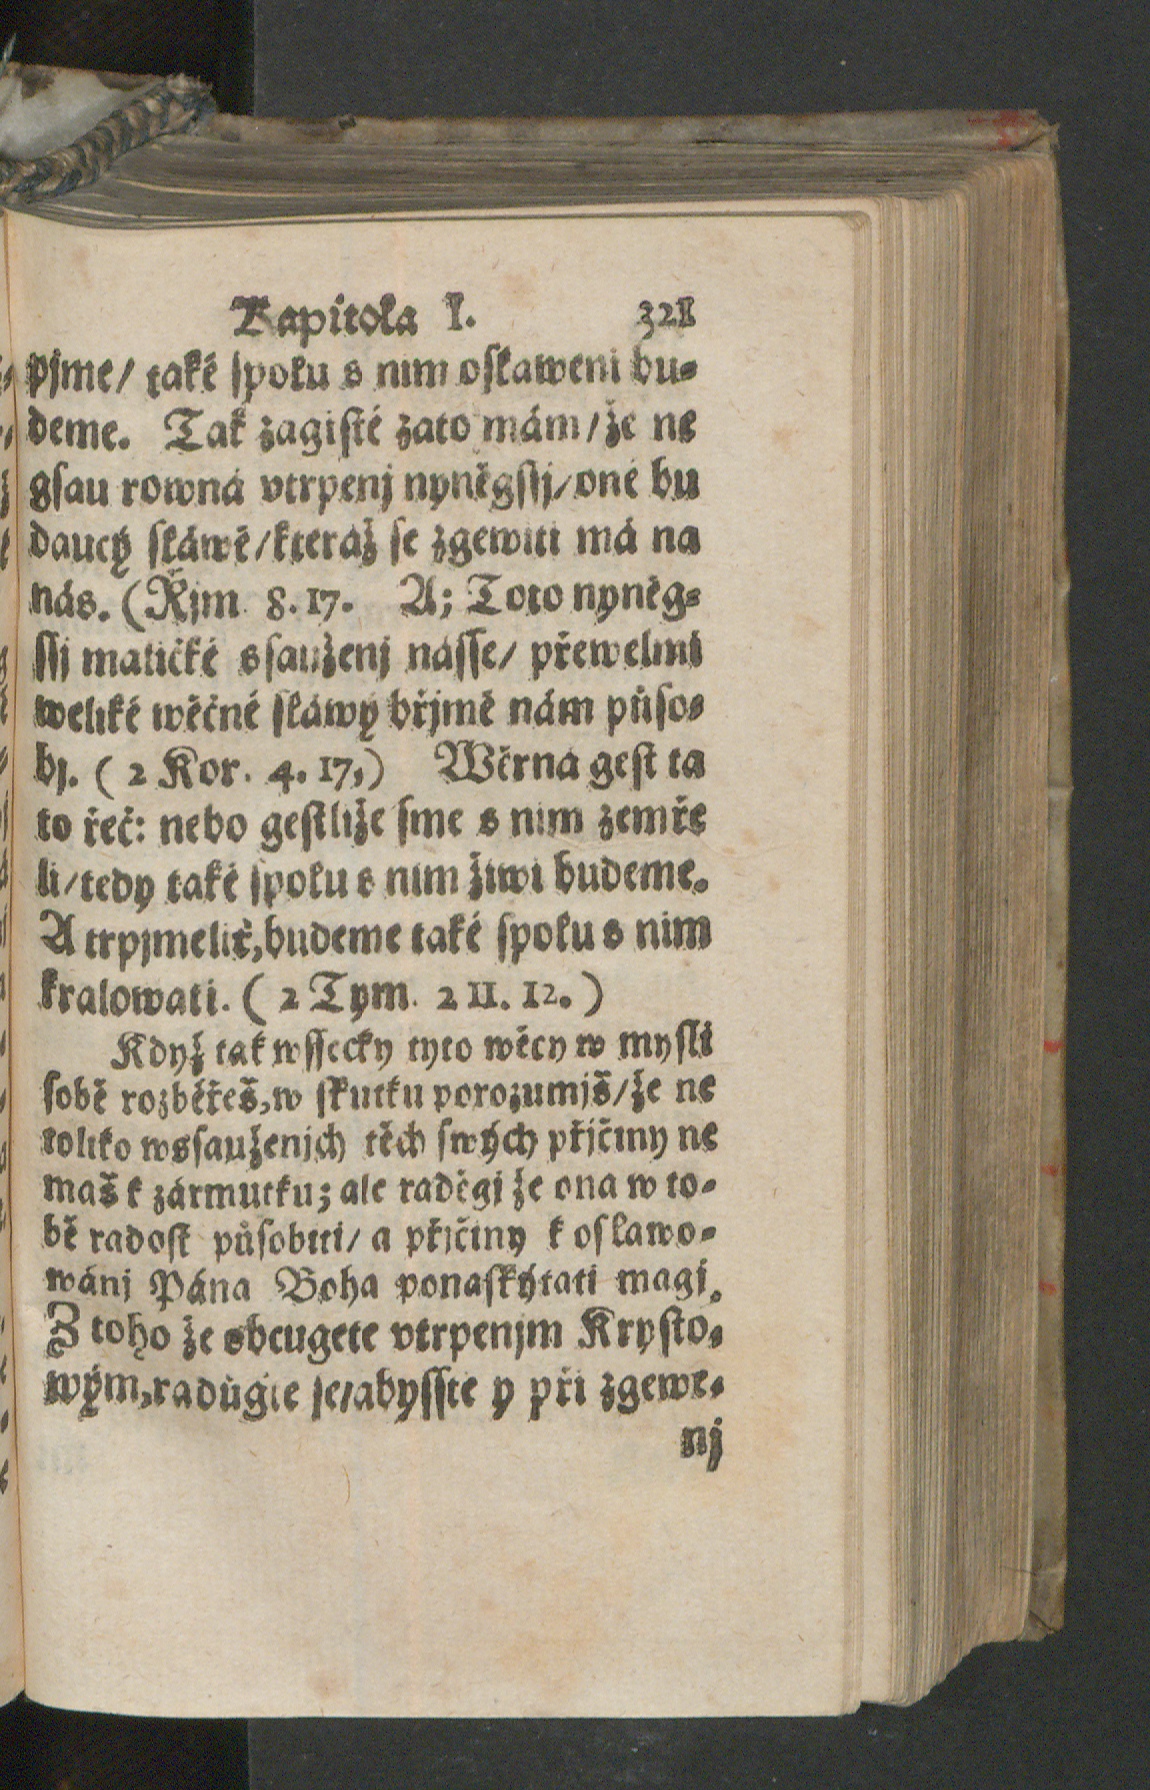 Kapitola I. 321
pjme/ také spolu s nim oslaweni bu⸗
deme. Tak zagisté zato mám/že ne
gsau rowná vtrpenj nyněgssj/oné bu
daucý sláwě/kteráž se zgewiti má na
nás. (Řjm 8. 17. A; Toto nyněg⸗
ssj maličké ssauženj násse/ přewelmi
weliké wěčné sláwy břjmě nám půso⸗
bj. ( 2 Kor. 4. 17,) Wěrná gest ta
to řeč: nebo gestliže sme s nim zemře
li/tedy také spolu s nim žiwi budeme.
A trpjmeliť,budeme také spolu s nim
kralowati. ( 2 Tym. 2 II. 12. )
Když tak wssecky tyto wěcy w mysli
sobě rozběřeš,w skutku porozumjš/že ne
toliko wssauženjch těch swých přjčiny ne
maš k zármutku; ale raděgi že ona w to⸗
bě radost působiti/ a přjčiny k oslawo⸗
wánj Pána Boha ponaskýtati magj.
Z toho že obcugete vtrpenjm Krysto⸗
wým,radůgte se/abysste y při zgewe⸗
nj